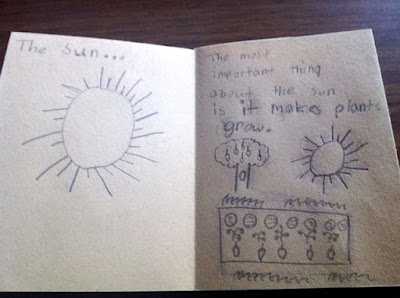 The Sun...
The most
important thing
about the sun
is it makes plants
grow.